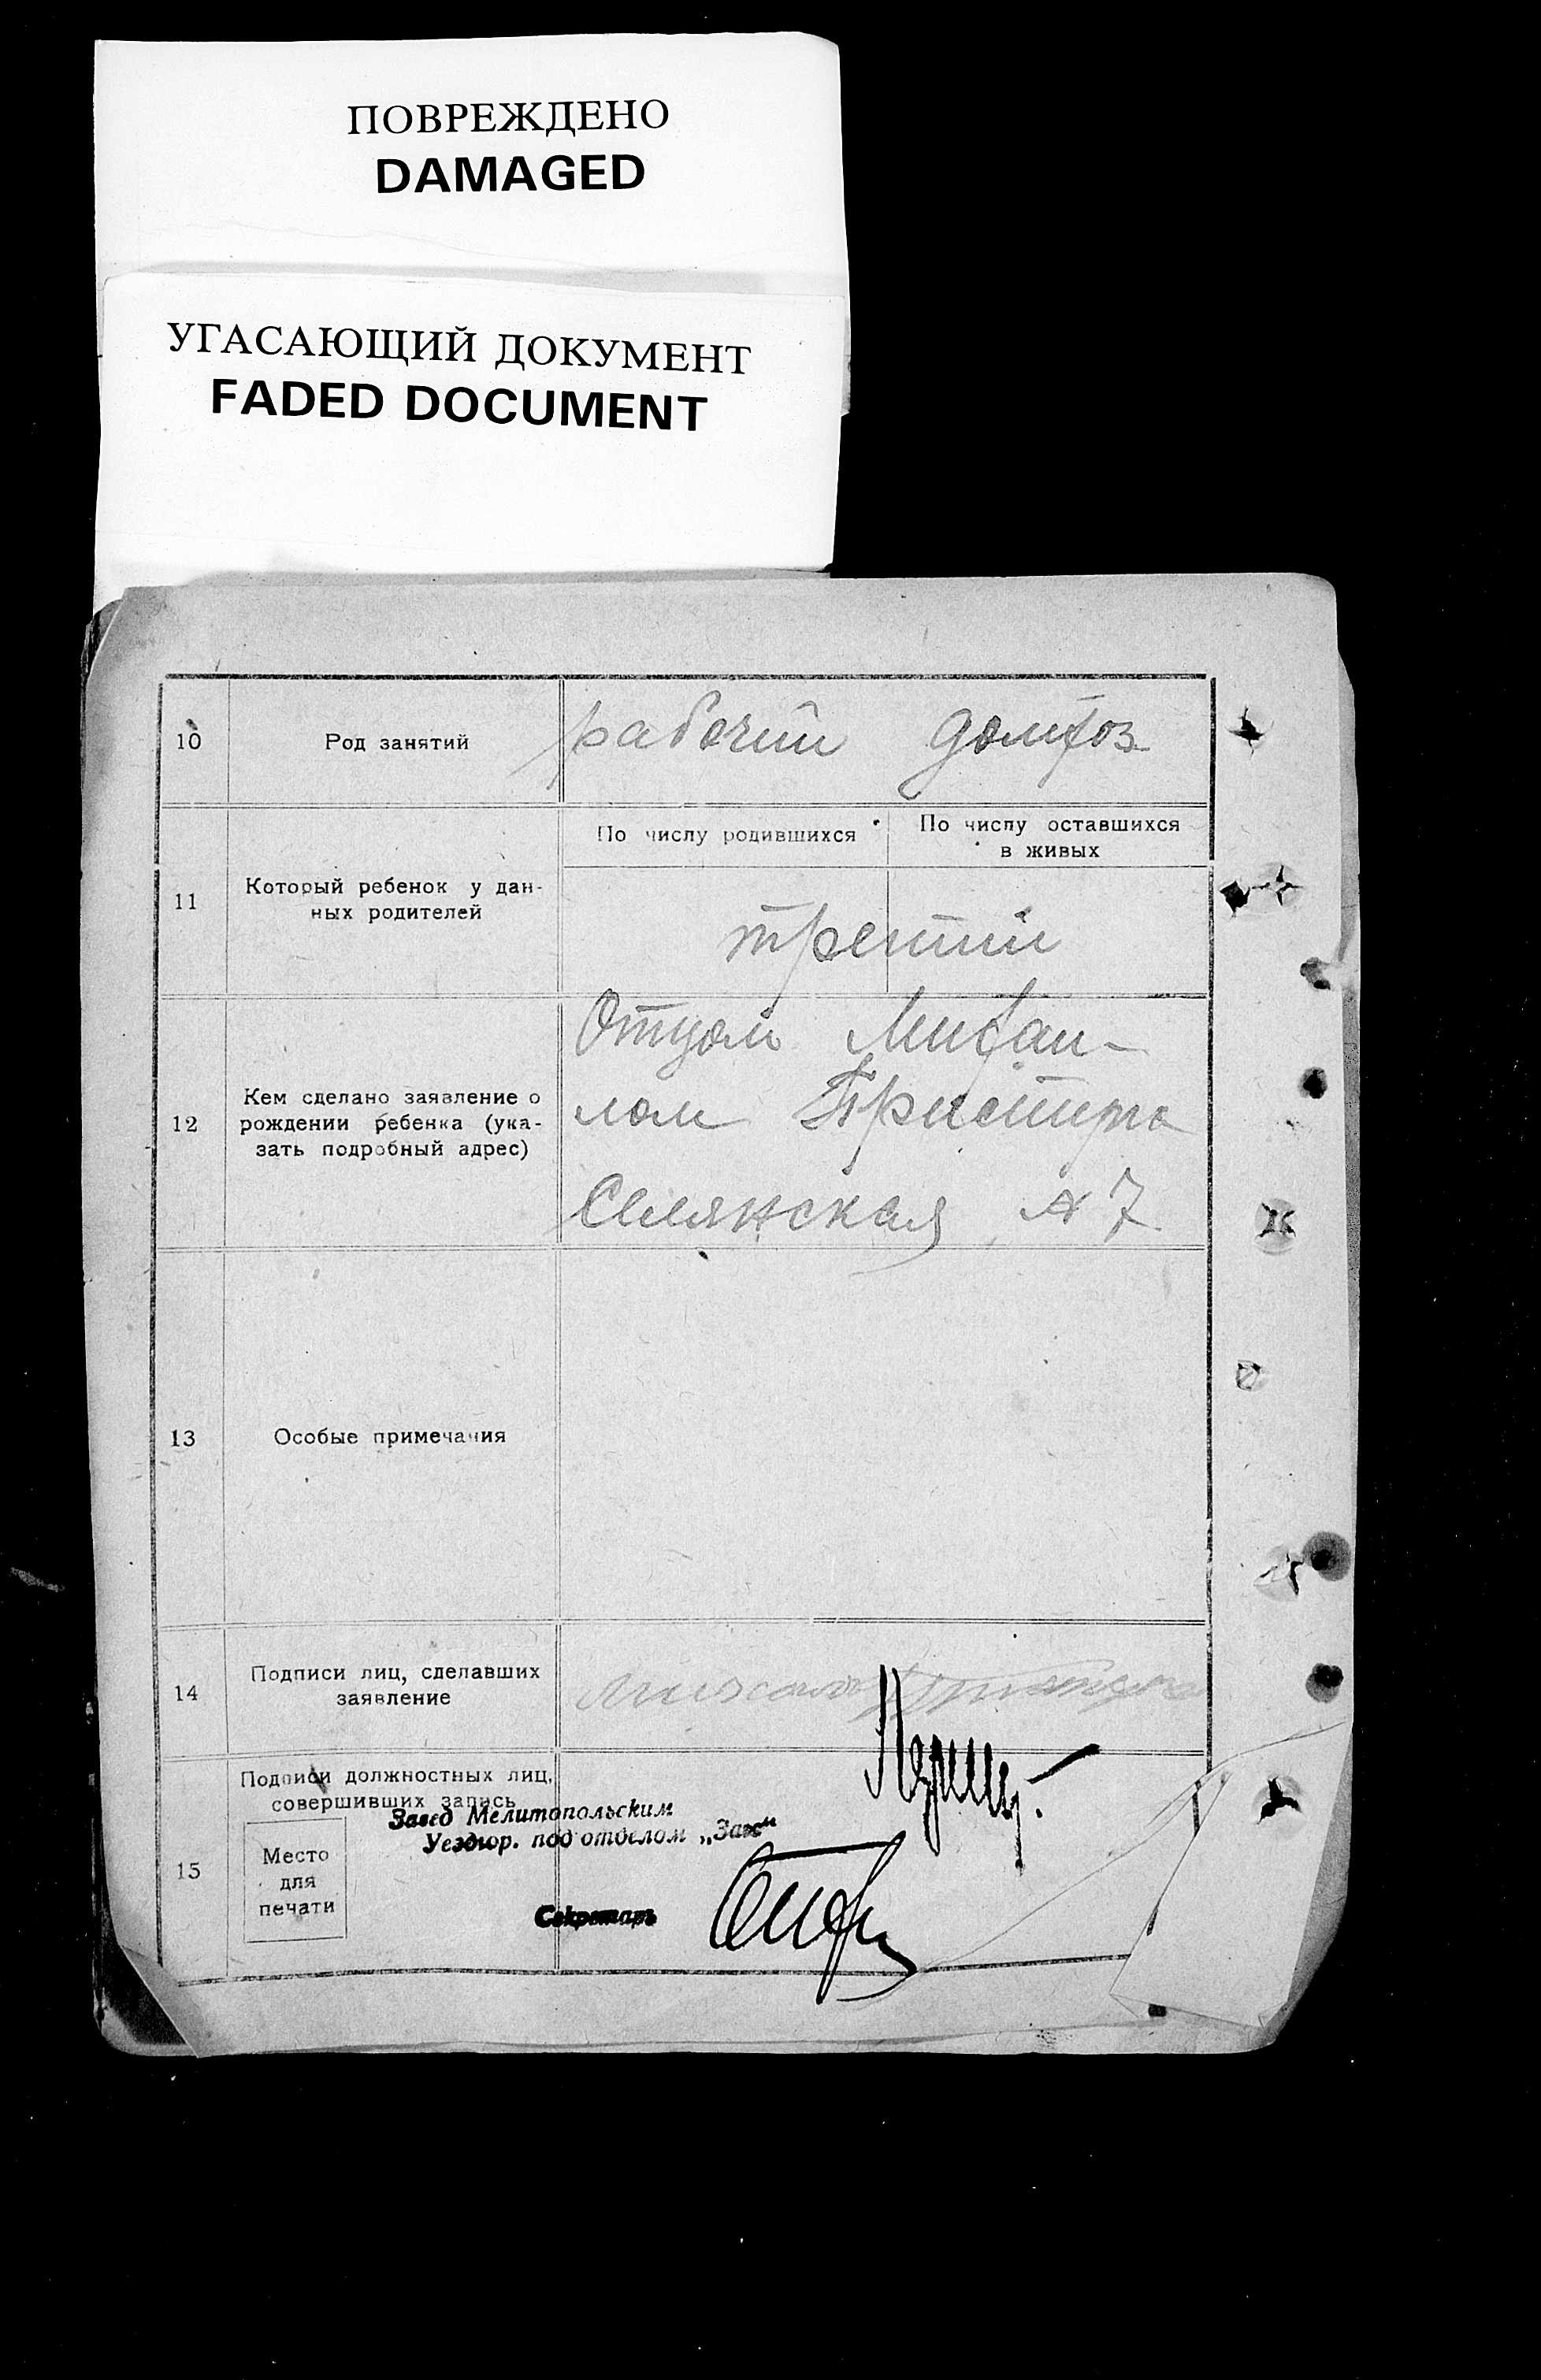 ПОВРЕЖДЕНО
DAMAGED
УГАСАЮЩИЙ ДОКУМЕНТ
FADED DOCUMENT
10
Род занятий
рабочий домхоз
11
Который ребенок у дан-
ных родителей
По числу родившихся
По числу оставшихся
в живых
третий
12
Кем сделано заявление о
рождении ребенка (ука-
зать подробный адрес)
Отцом Михаи-
лом
Селянская № 7
13
Особые примечания
14
Подписи лиц, сделавших
заявление
15
Подписи должностных лиц,
совершивших запись
Завед Мелитопольским
Уездгор. подотделом „Загс“
Место
для
печати
Секретарь